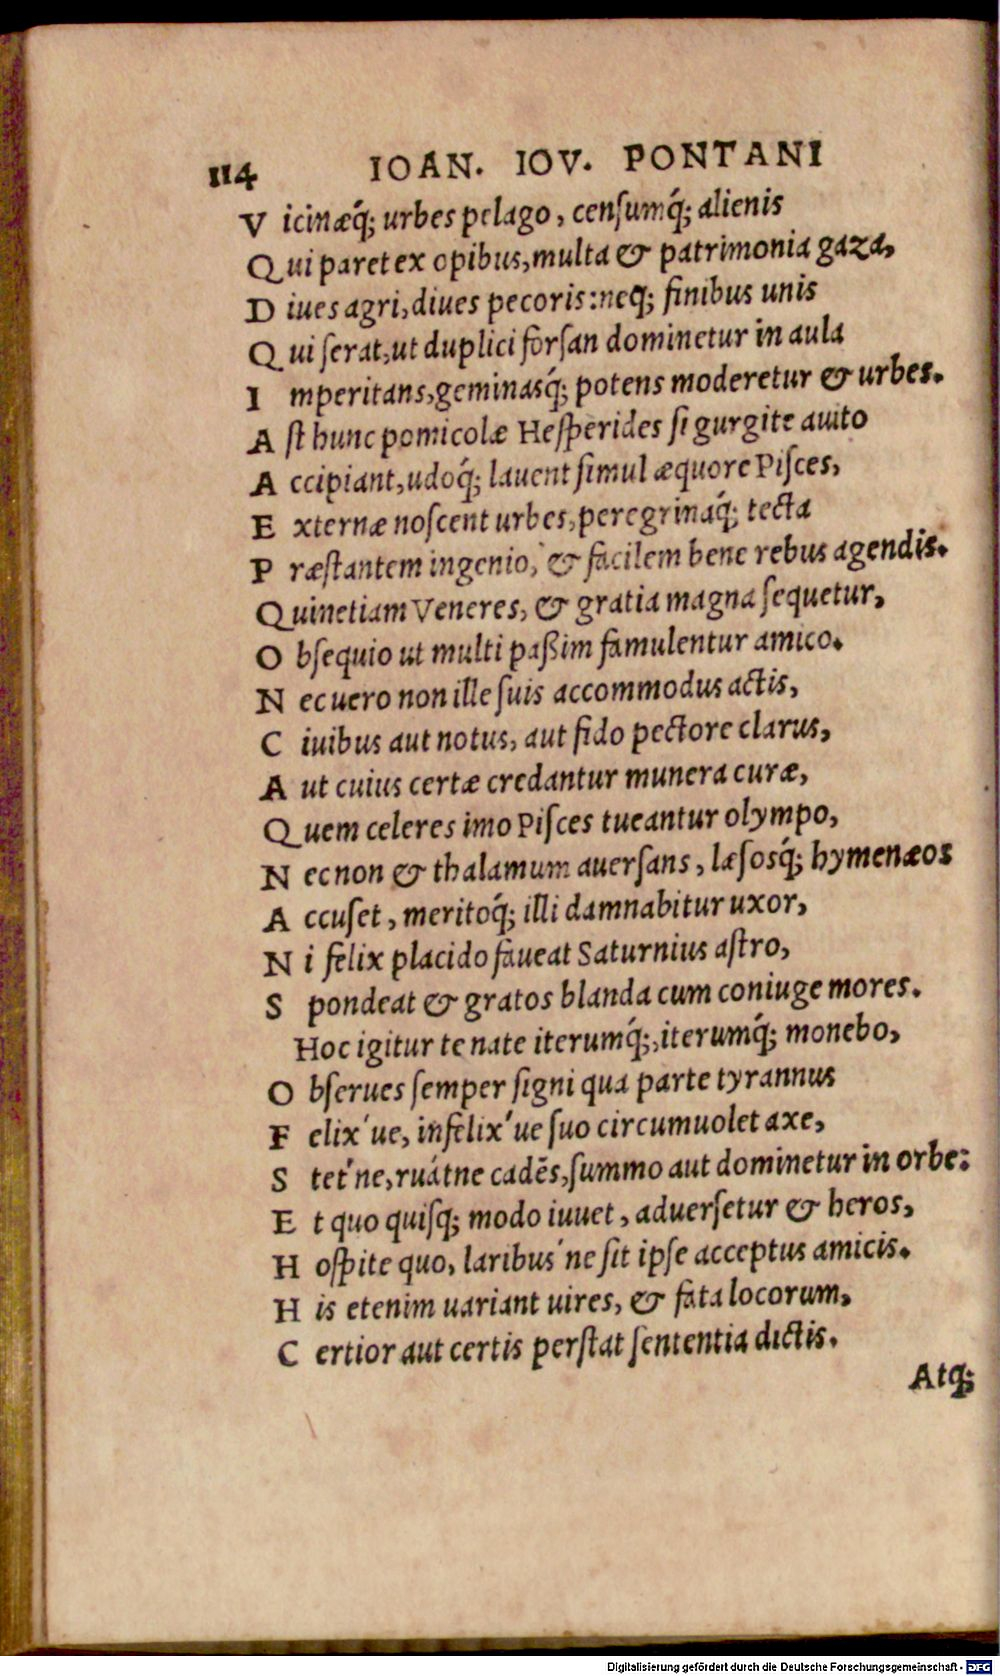 114 IOAN. IOV. PONTANI
V icinæq́; urbes pelago, censumq́; alienis
Q ui paret ex opibus, multa & patrimonia gaza,
D iues agri, diues pecoris: neq; finibus unis
Q ui serat, ut duplici forsan dominetur in aula
I mperitans, geminasq́; potens moderetur & urbes.
A st hunc pomicolæ Hesperides si gurgite auito
A ccipiant, udoq́; lauent simul æquore Pisces,
E xternæ noscent urbes, peregrinaq́; tecta
P ræstantem ingenio, & facilem bene rebus agendis.
Q uinetiam Veneres, & gratia magna sequetur,
O bsequio ut multi paßim famulentur amico.
N ec uero non ille suis accommodus actis,
C iuibus aut notus, aut fido pectore clarus,
A ut cuius certæ credantur munera curæ,
Q uem celeres imo Pisces tueantur olympo,
N ecnon & thalamum auersans, læsosq́; hymenæos
A ccuset, meritoq́; illi damnabitur uxor,
N i felix placido faueat Saturnius astro,
S pondeat & gratos blanda cum coniuge mores.
Hoc igitur te nate iterumq́;, iterumq́; monebo,
O bserues semper signi qua parte tyrannus
F elix'ue, infelix'ue suo circumuolet axe,
S tet'ne, ruátne cadēs, summo aut dominetur in orbe:
E t quo quisq; modo iuuet, aduersetur & heros,
H ospite quo, laribus'ne sit ipse acceptus amicis.
H is etenim uariant uires, & fata locorum,
C ertior aut certis perstat sententia dictis.
Atq;
Digitalisierung gefördert durch die Deutsche Forschungsgemeinschaft - DFG